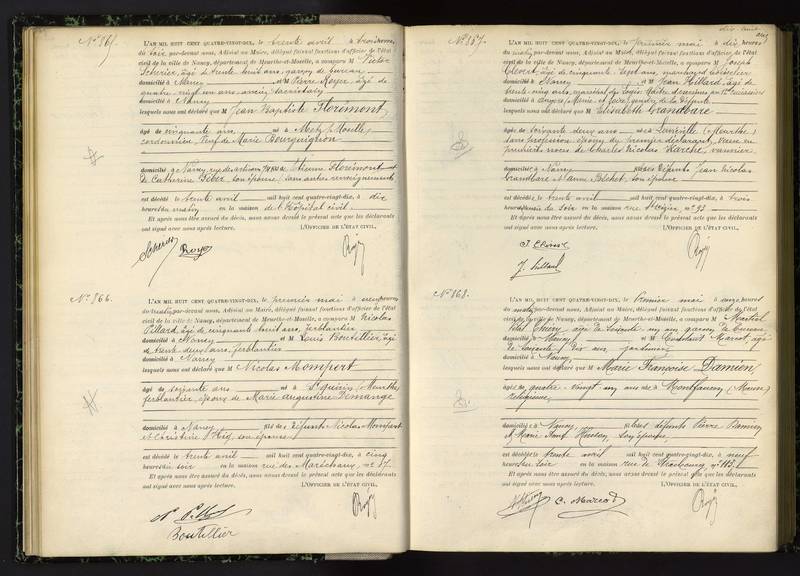 L'AN MIL HUIT CENT QUATRE-VINGT-DIX, le trente avril à trois heures
du soir par-devant nous, Adjoint au Maire, délégué faisant fonctions d'officier de l'état
civil de la ville de Nancy, département de Meurthe-et-Moselle, a comparu M
Scherier, âgé de trente huit ans, garçon de bureau
domicilié à Nancy et M Pierre Royer, âgé de
quatre vingt un ans, ancien
domicilié à Nancy
lesquels nous ont déclaré que M Jean Baptiste Florémont
âgé de cinquante ans né à Metz (Moselle)
cordonnier veuf de Marie Bourguignon
domicilié à Nancy, rue des artisans fils de Etienne Florémont et
de Catherine son épouse (sans autres renseignements
est décédé le trente avril mil huit cent quatre-vingt-dix, à dix
heures du matin en la maison de l'hôpital civil
Et après nous être assuré du décès, nous avons dressé le présent acte que les déclarants
ont signé avec nous après lecture. L'OFFICIER DE L'ÉTAT CIVIL,
Royer
N° 866.
L'AN MIL HUIT CENT QUATRE-VINGT-DIX, le premier mai à neuf heures
du matin, par-devant nous, Adjoint au Maire, délégué faisant fonctions d'officier de l'état
civil de la ville de Nancy, département de Meurthe-et-Moselle, a comparu M Nicolas
Pillard, âgé de cinquante huit ans, ferblantier
domicilié à Nancy et M Louis Boutellier, âgé
de trente deux ans, ferblantier
domicilié à Nancy
lesquels nous ont déclaré que M Nicolas Mompert
âgé de soixante ans né à St Quirin (Meurthe)
ferblantier, époux de Marie Augustine Demange
domicilié à Nancy fils de défunts Nicolas Mompert
et Christine son épouse
est décédé le trente avril mil huit cent quatre-vingt-dix, à cinq
heures du soir en la maison rue des Maréchaux, n° 17.
Et après nous être assuré du décès, nous avons dressé le présent acte que les déclarants
ont signé avec nous après lecture. L'OFFICIER DE L'ÉTAT CIVIL,
Boutellier
N° 867.
L'AN MIL HUIT CENT QUATRE-VINGT-DIX, le premier mai à dix heures
du matin, par-devant nous, Adjoint au Maire, délégué faisant fonctions d'officier de l'état
civil de la ville de Nancy, département de Meurthe-et-Moselle, a comparu M Joseph
âgé de cinquante sept ans, marchand
domicilié à Nancy et M Jean Hillard, âgé de
trente cinq ans, maréchal des logis maître d'escrime au 12e cuirassiers
domicilié à gendre de la défunte
lesquels nous ont déclaré que M Elisabeth Grandbarc
âgée de soixante deux ans née à Lunéville (Meurthe)
sans profession épouse du premier déclarant, veuve en
premières noces de Charles Nicolas vannier,
domiciliée à Nancy fille des défunts Jean Nicolas
Grandbarc et Anne son épouse
est décédée le trente avril mil huit cent quatre-vingt-dix, à trois
heures du soir en la maison rue St Dizier, n° 93
Et après nous être assuré du décès, nous avons dressé le présent acte que les déclarants
ont signé avec nous après lecture. L'OFFICIER DE L'ÉTAT CIVIL,
N° 868.
L'AN MIL HUIT CENT QUATRE-VINGT-DIX, le Premier mai à onze heures
du matin, par-devant nous, Adjoint au Maire, délégué faisant fonctions d'officier de l'état
civil de la ville de Nancy, département de Meurthe-et-Moselle, a comparu M Martial
Thiéry âgé de soixante un ans garçon de bureau
domicilié à Nancy et M Constant Marcot, âgé
de soixante dix ans jardinier
domicilié à Nancy
lesquels nous ont déclaré que M Marie Françoise Damien
âgée de quatre-vingt un ans née à Montfaucon (Meuse)
religieuse
domiciliée à Nancy fille des défunts Pierre Damien
et Marie son épouse
est décédée le trente avril mil huit cent quatre-vingt-dix, à neuf
heures du soir en la maison rue de Strasbourg n° 115.
Et après nous être assuré du décès, nous avons dressé le présent acte que les déclarants
ont signé avec nous après lecture. L'OFFICIER DE L'ÉTAT CIVIL,
C. Marcot